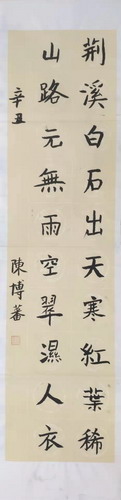 荆溪白石出天寒紅葉稀
山路元無雨空翠濕人衣
辛丑
陳博蕃